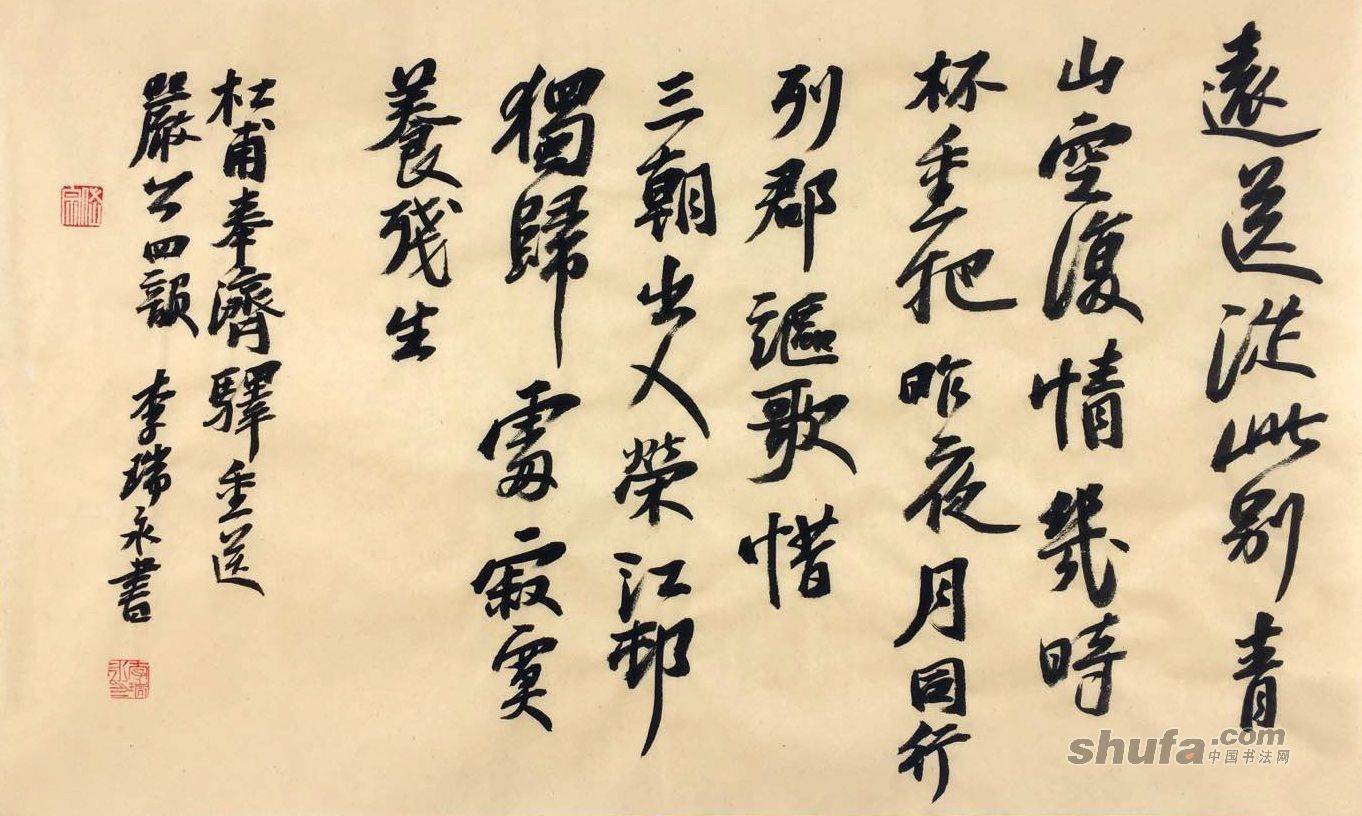 遠送從此別青
山空復情幾時
杯重把昨夜月同行
列郡謳歌惜
三朝出入榮江邨
獨歸處寂寞
養殘生
杜甫奉濟驛重送
嚴公四韻 李瑞永書
李瑞永印
shufa.com
中国书法网